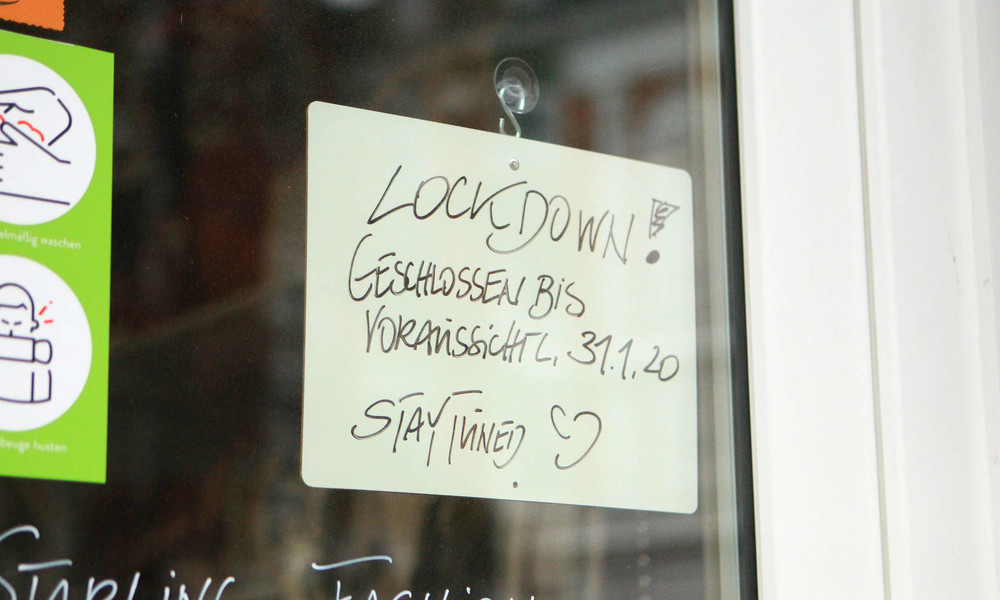 elmäßig waschen
beuge husten
LOCKDOWN!
GESCHLOSSEN BIS
VORAUSSICHTL. 31.1.20
STAY TUNED ♡